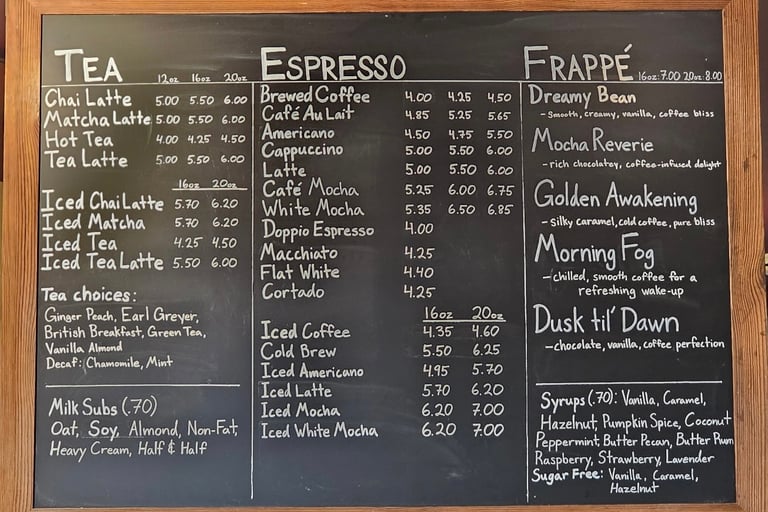 TEA 12oz 16oz 20oz
Chai Latte 5.00 5.50 6.00
Matcha Latte 5.00 5.50 6.00
Hot Tea 4.00 4.25 4.50
Tea Latte 5.00 5.50 6.00
16oz 20oz
Iced Chai Latte 5.70 6.20
Iced Matcha 5.70 6.20
Iced Tea 4.25 4.50
Iced Tea Latte 5.50 6.00
Tea choices:
Ginger Peach, Earl Greyer,
British Breakfast, Green Tea,
Vanilla Almond
Decaf: Chamomile, Mint
Milk Subs (.70)
Oat, Soy, Almond, Non-Fat,
Heavy Cream, Half & Half
ESPRESSO
Brewed Coffee 4.00 4.25 4.50
Café Au Lait 4.85 5.25 5.65
Americano 4.50 4.75 5.50
Cappuccino 5.00 5.50 6.00
Latte 5.00 5.50 6.00
Café Mocha 5.25 6.00 6.75
White Mocha 5.35 6.50 6.85
Doppio Espresso 4.00
Macchiato 4.25
Flat White 4.40
Cortado 4.25
16oz 20oz
Iced Coffee 4.35 4.60
Cold Brew 5.50 6.25
Iced Americano 4.95 5.70
Iced Latte 5.70 6.20
Iced Mocha 6.20 7.00
Iced White Mocha 6.20 7.00
FRAPPÉ 16oz: 7.00 20oz: 8.00
Dreamy Bean
- Smooth, creamy, vanilla, coffee bliss
Mocha Reverie
- rich chocolatey, coffee-infused delight
Golden Awakening
- silky caramel, cold coffee, pure bliss
Morning Fog
- chilled, smooth coffee for a
refreshing wake-up
Dusk til' Dawn
- chocolate, vanilla, coffee perfection
Syrups (.70): Vanilla, Caramel,
Hazelnut, Pumpkin Spice, Coconut
Peppermint, Butter Pecan, Butter Rum
Raspberry, Strawberry, Lavender
Sugar Free: Vanilla, Caramel,
Hazelnut